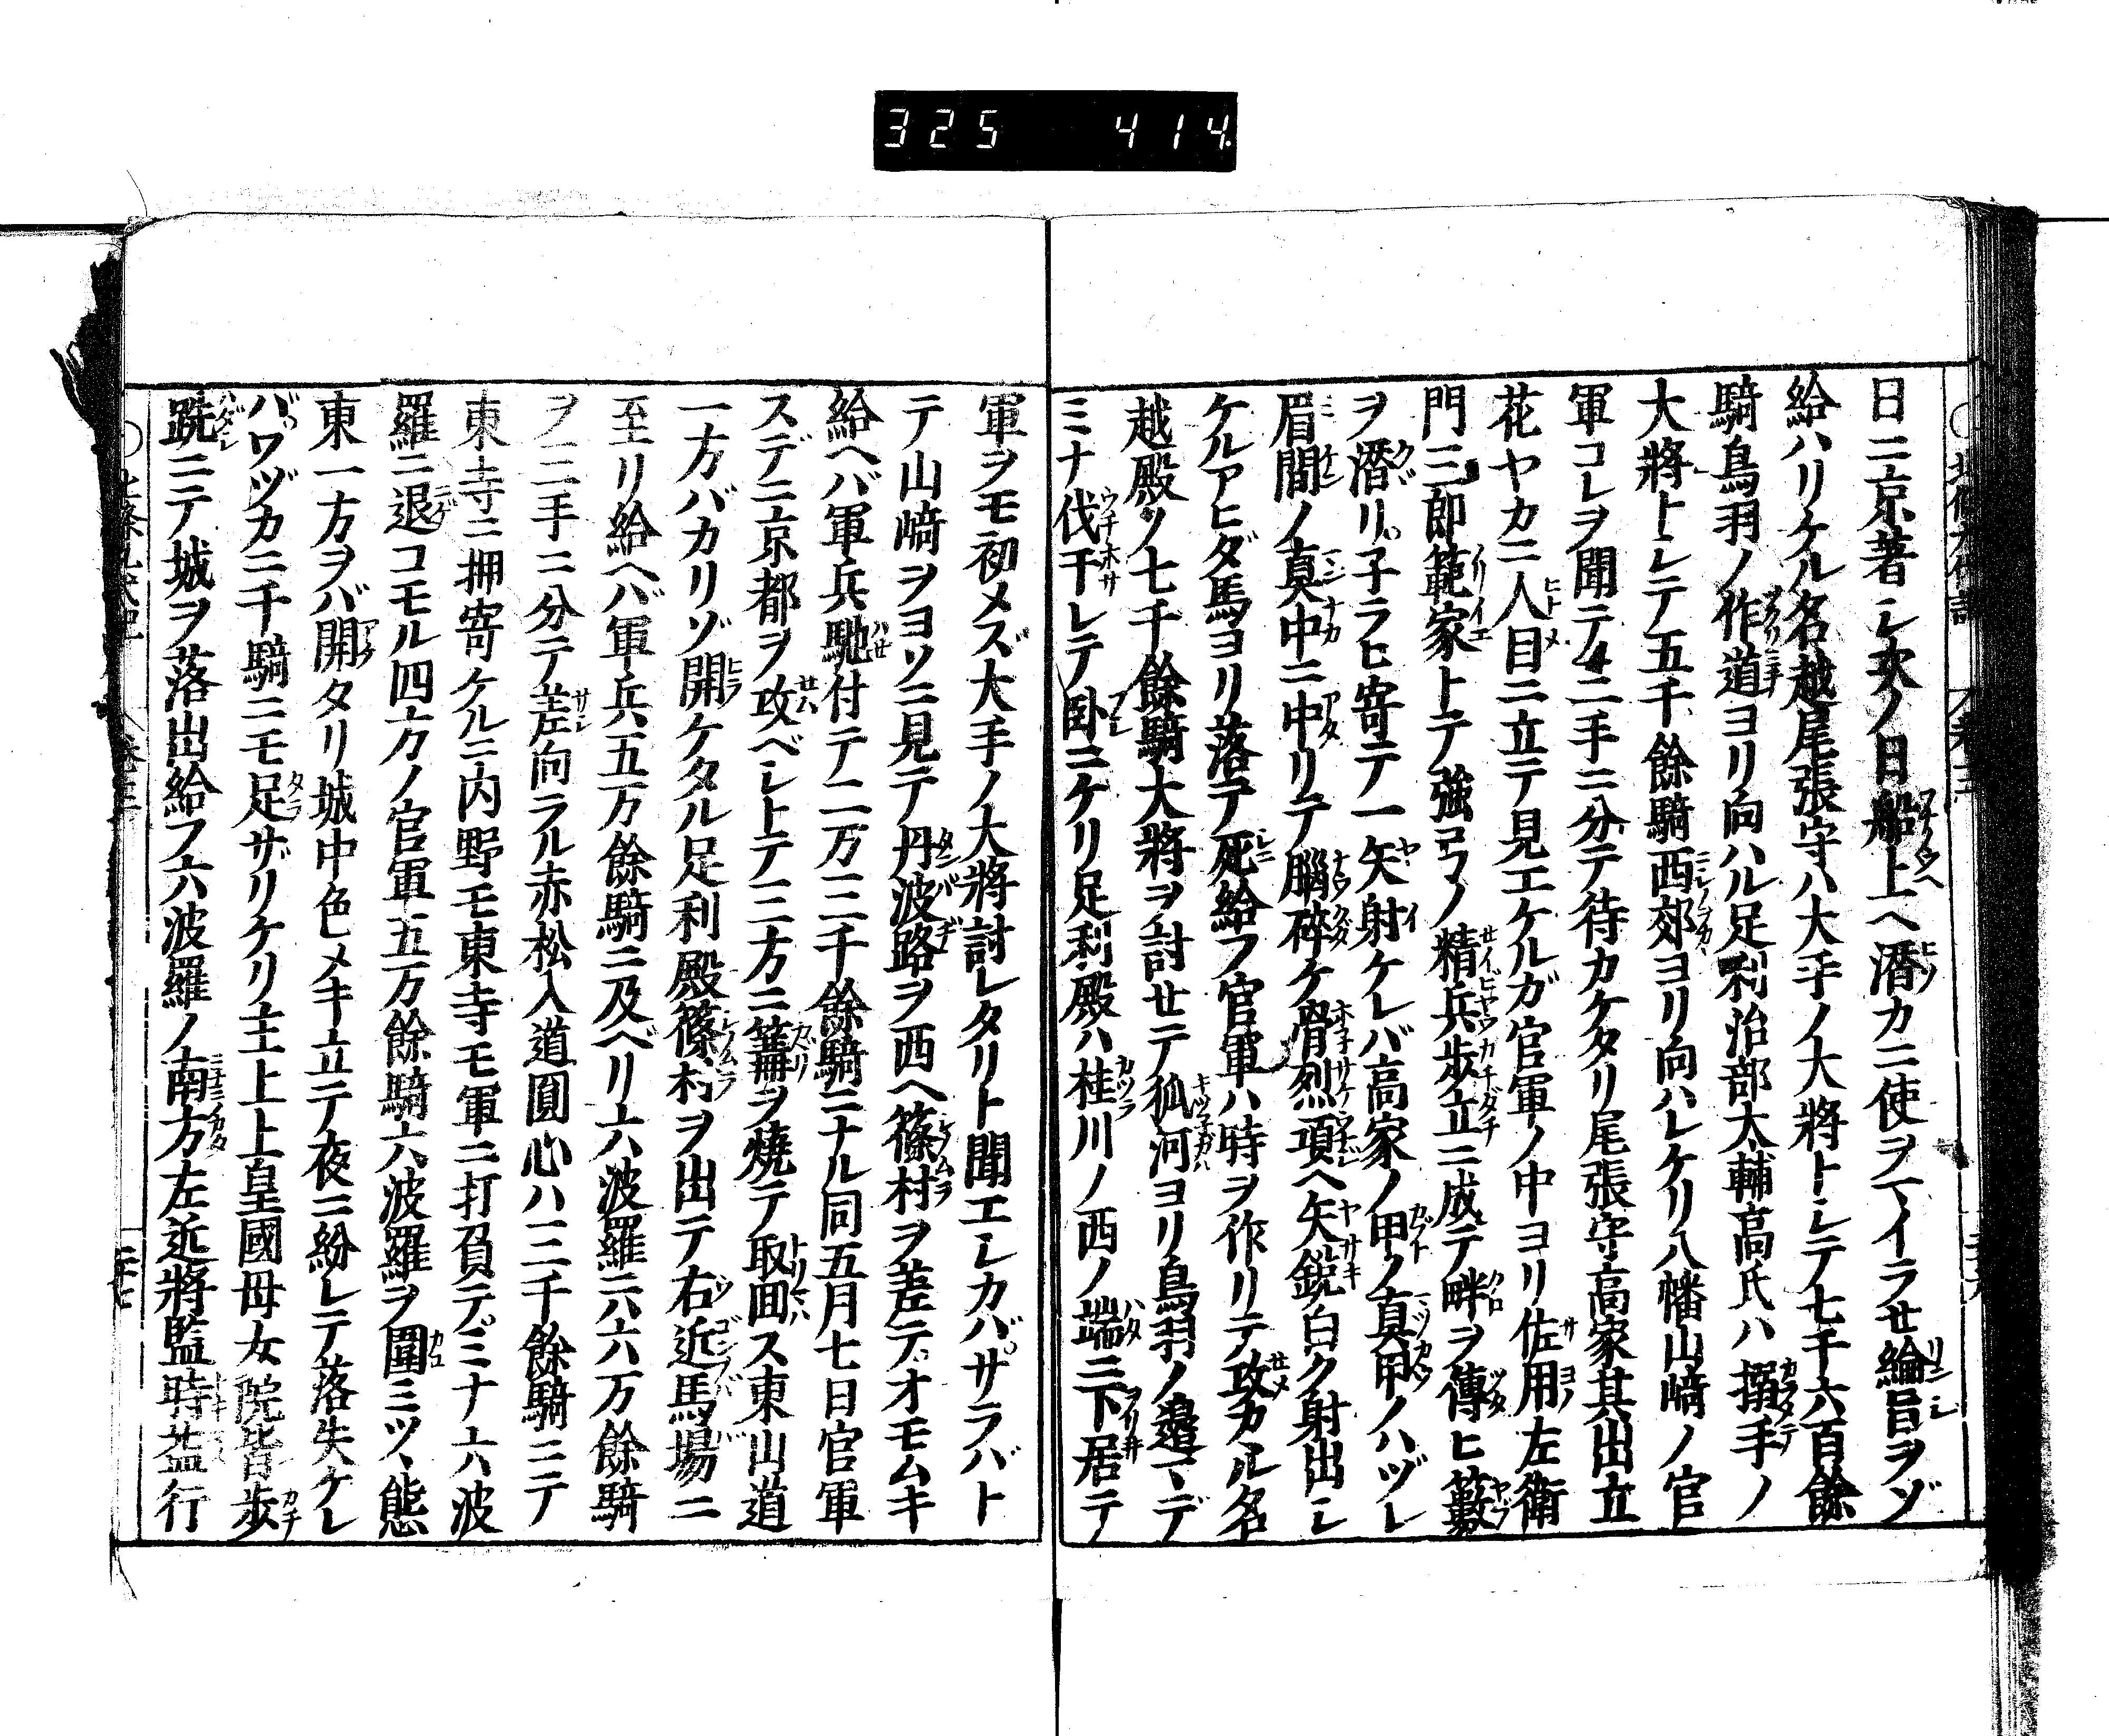 325 414
日ニ京著シ次ノ日船上ヘ潜カニ使ヲマイラセ綸旨ヲゾ
給ハリケル名越尾張守ハ大手ノ大将トシテ七千六百餘
騎鳥羽ノ作道ヨリ向ハル足利治部太輔高氏ハ搦手ノ
大將トシテ五千餘騎西郊ヨリ向ハレケリ八幡山﨑ノ官
軍コレヲ聞テ二手ニ分テ待カケタリ尾張守高家其出立
花ヤカニ人目ニ立テ見エケルガ官軍ノ中ヨリ佐用左衛
門三郎範家トテ強弓ノ精兵歩立ニ成テ畔ヲ傳ヒ籔
ヲ潜リ子ラヒ寄テ一矢射ケレバ高家ノ甲ノ真甲ノハヅレ
眉間ノ真中ニ中リテ腦碎ケ骨烈項ヘ矢鋭白ク射出シ
ケルアヒダ馬ヨリ落テ死給フ官軍ハ時ヲ作リテ攻カル名
越殿ノ七千餘騎大將ヲ討セテ狐河ヨリ鳥羽ノ邉マデ
ミナ伐干シテ卧ニケリ足利殿ハ桂川ノ西ノ端ニ下居テ
軍ヲモ初メズ大手ノ大將討レタリト聞エシカバサラバト
テ山﨑ヲヨソニ見テ丹波路ヲ西ヘ篠村ヲ差テオモムキ
給ヘバ軍兵馳付テ二万三千餘騎ニナル同五月七日官軍
スデニ京都ヲ攻ベシトテ三方ニ篝ヲ燒テ取囬ス東山道
一方バカリゾ開ケタル足利殿篠村ヲ出テ右近馬場ニ
至リ給ヘバ軍兵五万餘騎ニ及ベリ六波羅ニ六六万餘騎
ヲ三手ニ分テ差向ラル赤松入道圓心ハ三千餘騎ニテ
東寺ニ押寄ケルニ内野モ東寺モ軍ニ打負テミナ六波
羅ニ退コモル四方ノ官軍五万餘騎六波羅ヲ圍ミツヽ態
東一方ヲバ開タリ城中色メキ立テ夜ニ紛レテ落失ケレ
バワヅカニ千騎ニモ足ザリケリ主上上皇國母女院皆歩
跣ニテ城ヲ落出給フ六波羅ノ南方左近將監時益行